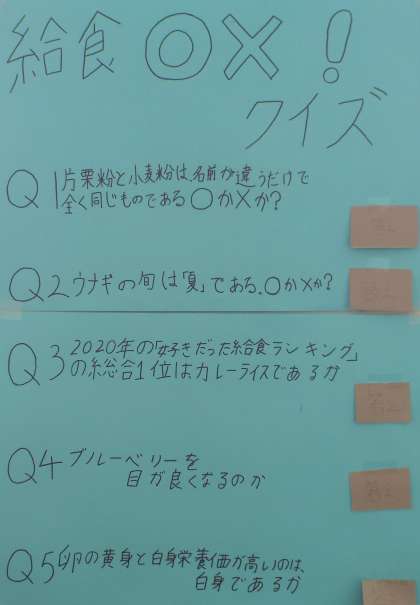 給食○×！
クイズ
Q1片栗粉と小麦粉は、名前が違うだけで
全く同じものである○か×か?
Q2ウナギの旬は「夏」である.○か×か?
Q3 2020年の「好きだった給食ランキング」
の総合1位はカレーライスであるか
Q4ブルーベリーを
目が良くなるのか
Q5卵の黄身と白身栄養価が高いのは、
白身であるか